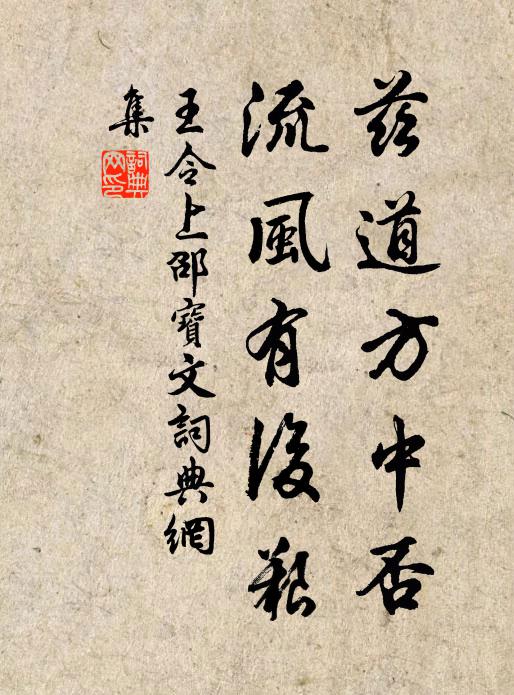 茲道方中否
流風有後艱
王令上邵寶文詞典網
集
詞典網印